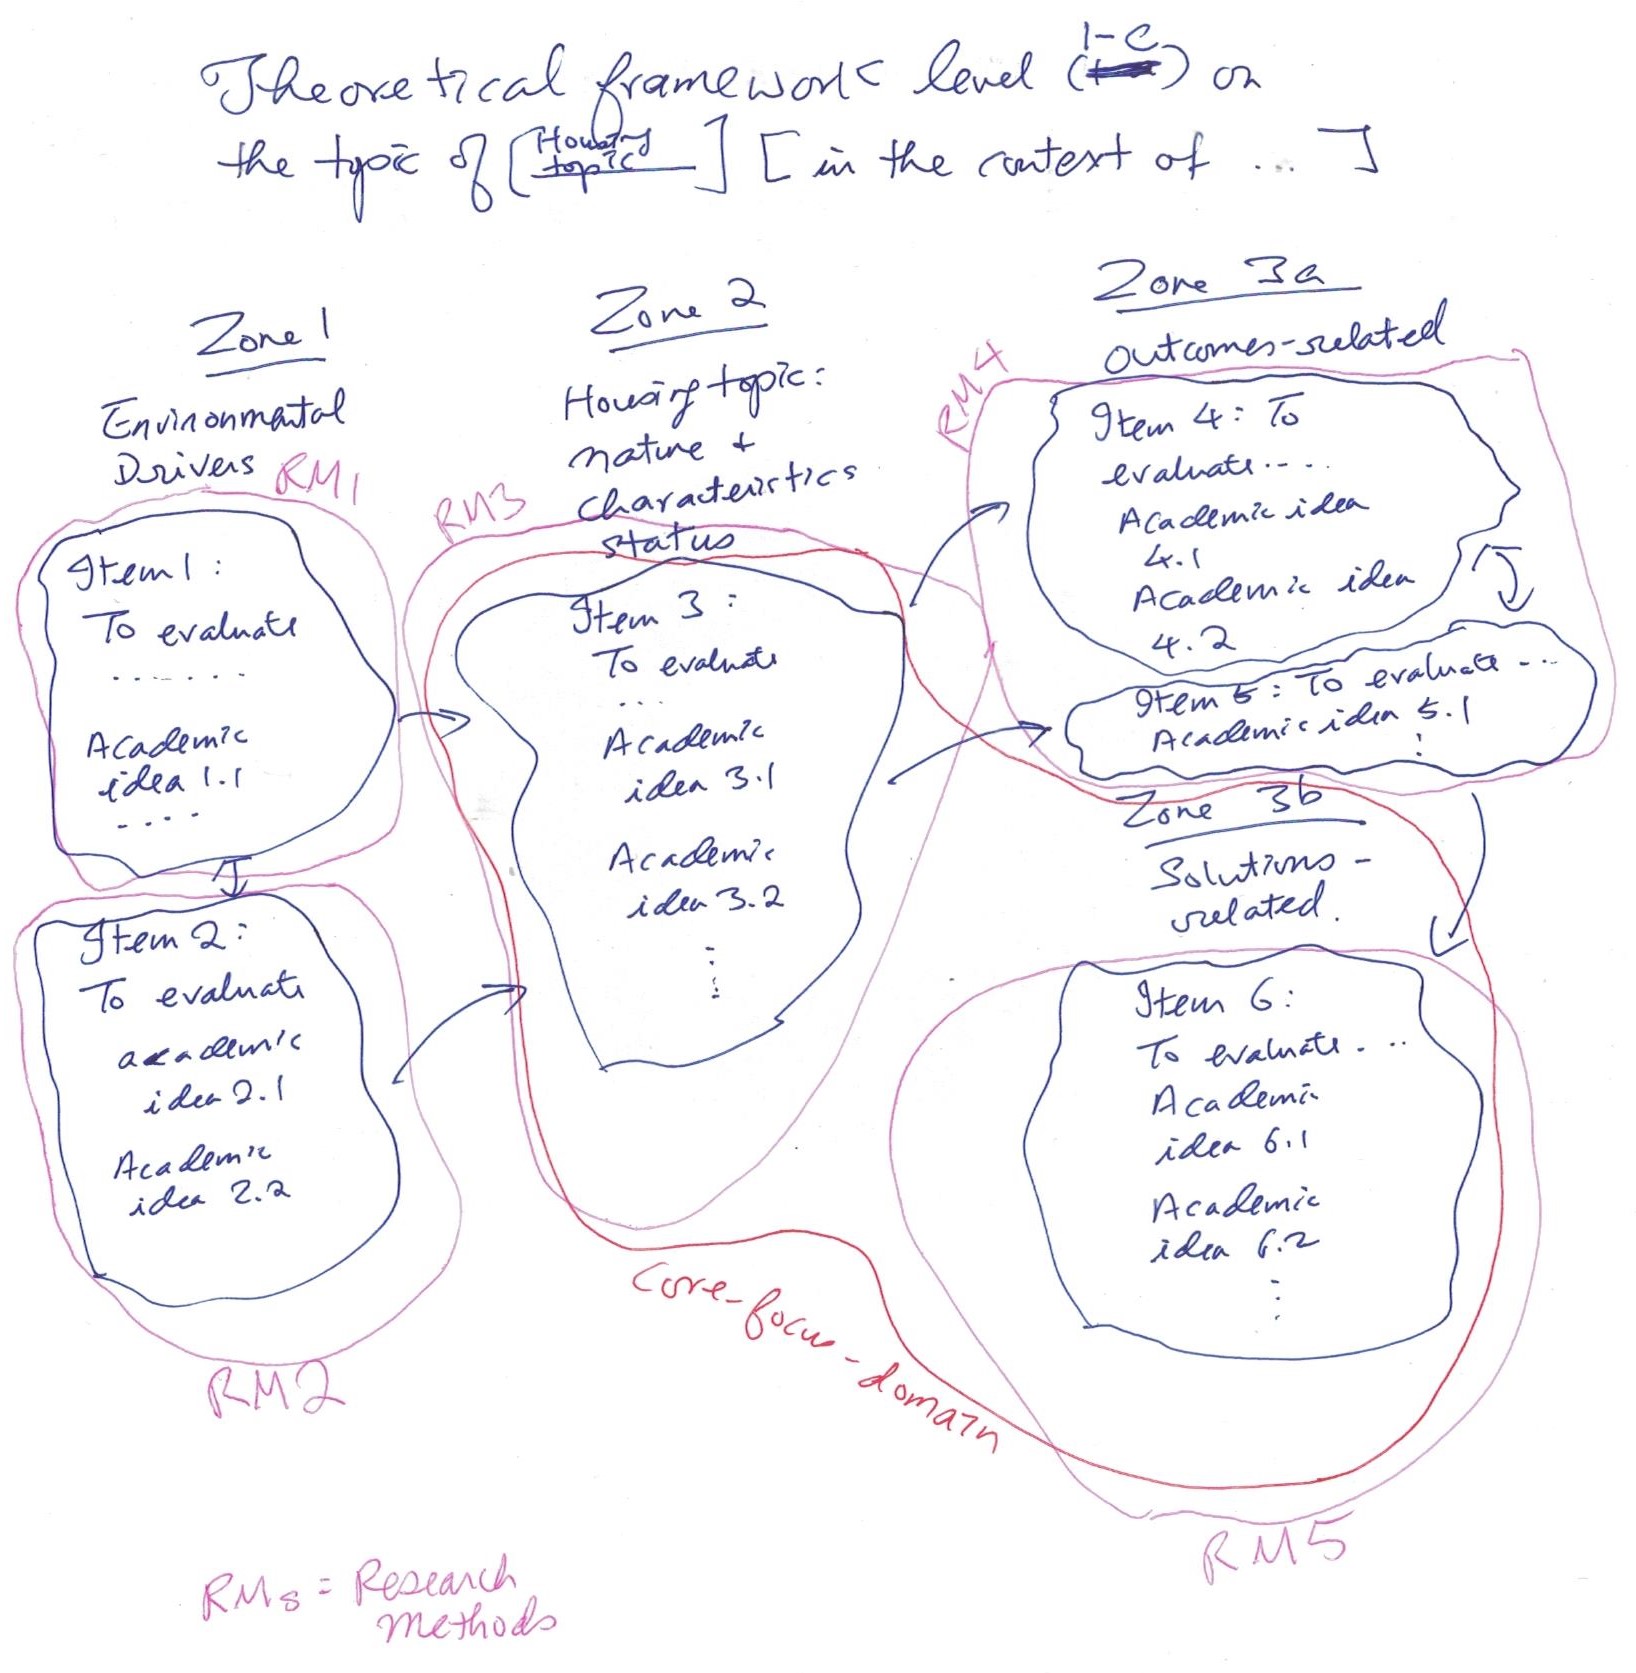 Theoretical framework level (1-c) on
the typic of [Housing topic] [in the context of ... ]
Zone 1
Environmental
Drivers
RM1
Item 1:
To evaluate
.......
Academic
idea 1.1
....
Item 2:
To evaluate
academic
idea 2.1
Academic
idea 2.2
RM2
Zone 2
Housing topic:
nature +
characteristics
status
RM3
Item 3:
To evaluate
...
Academic
idea 3.1
Academic
idea 3.2
Zone 3a
outcomes-related
RM4
Item 4: To
evaluate....
Academic idea
4.1
Academic idea
4.2
Item 5: To evaluate ...
Academic idea 5.1
Zone 3b
Solutions-
related.
Item 6:
To evaluate....
Academic
idea 6.1
Academic
idea 6.2
RM5
Core-focus-domain
RMs = Research
Methods